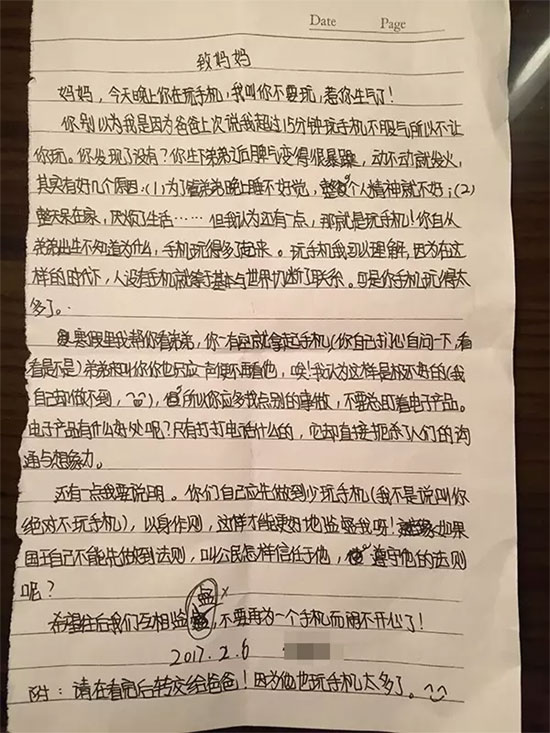 Date Page
致妈妈
妈妈，今天晚上你在玩手机，我叫你不要玩，惹你生气了！
你别以为我是因为爸爸上次说我超过15分钟玩手机不服气所以不让
你玩。你发现了没有？你生下弟弟近脾气变得很暴躁，动不动就发火，
其实有好几个原因：(1)为了管弟弟晚上睡不好觉，整个人精神就不好；(2)
整天呆在家，厌烦了生活……但我认为还有一点，那就是玩手机！你自从
弟弟出生不知道为什么，手机玩得多了起来。玩手机我可以理解，因为在这
样的时代下，人没有手机就等于基本与世界切断了联系。可是你手机玩得太
多了。
寒假里我帮你看弟弟，你一有空就拿起手机(你自己扪心自问一下，看
看是不是)弟弟来叫你你也只应一声便不再看他，唉！我认为这样是极不好的(我
自己却做不到，)，所以你应多找点别的事做，不要总盯着电子产品。
电子产品有什么好处呢？只有打打电话什么的，它却直接扼杀了人们的沟
通与想象力。
还有一点我要说明。你们自己应先做到少玩手机(我不是说叫你
绝对不玩手机)，以身作则，这样才能更好地监督我呀！如果
国王自己不能先做到法则，叫公民怎样信任他，遵守他的法则
呢？
希望往后我们互相监督，不要再为一个手机而闹不开心了！
2017.2.6
附：请在看完后转交给爸爸！因为他也玩手机太多了。